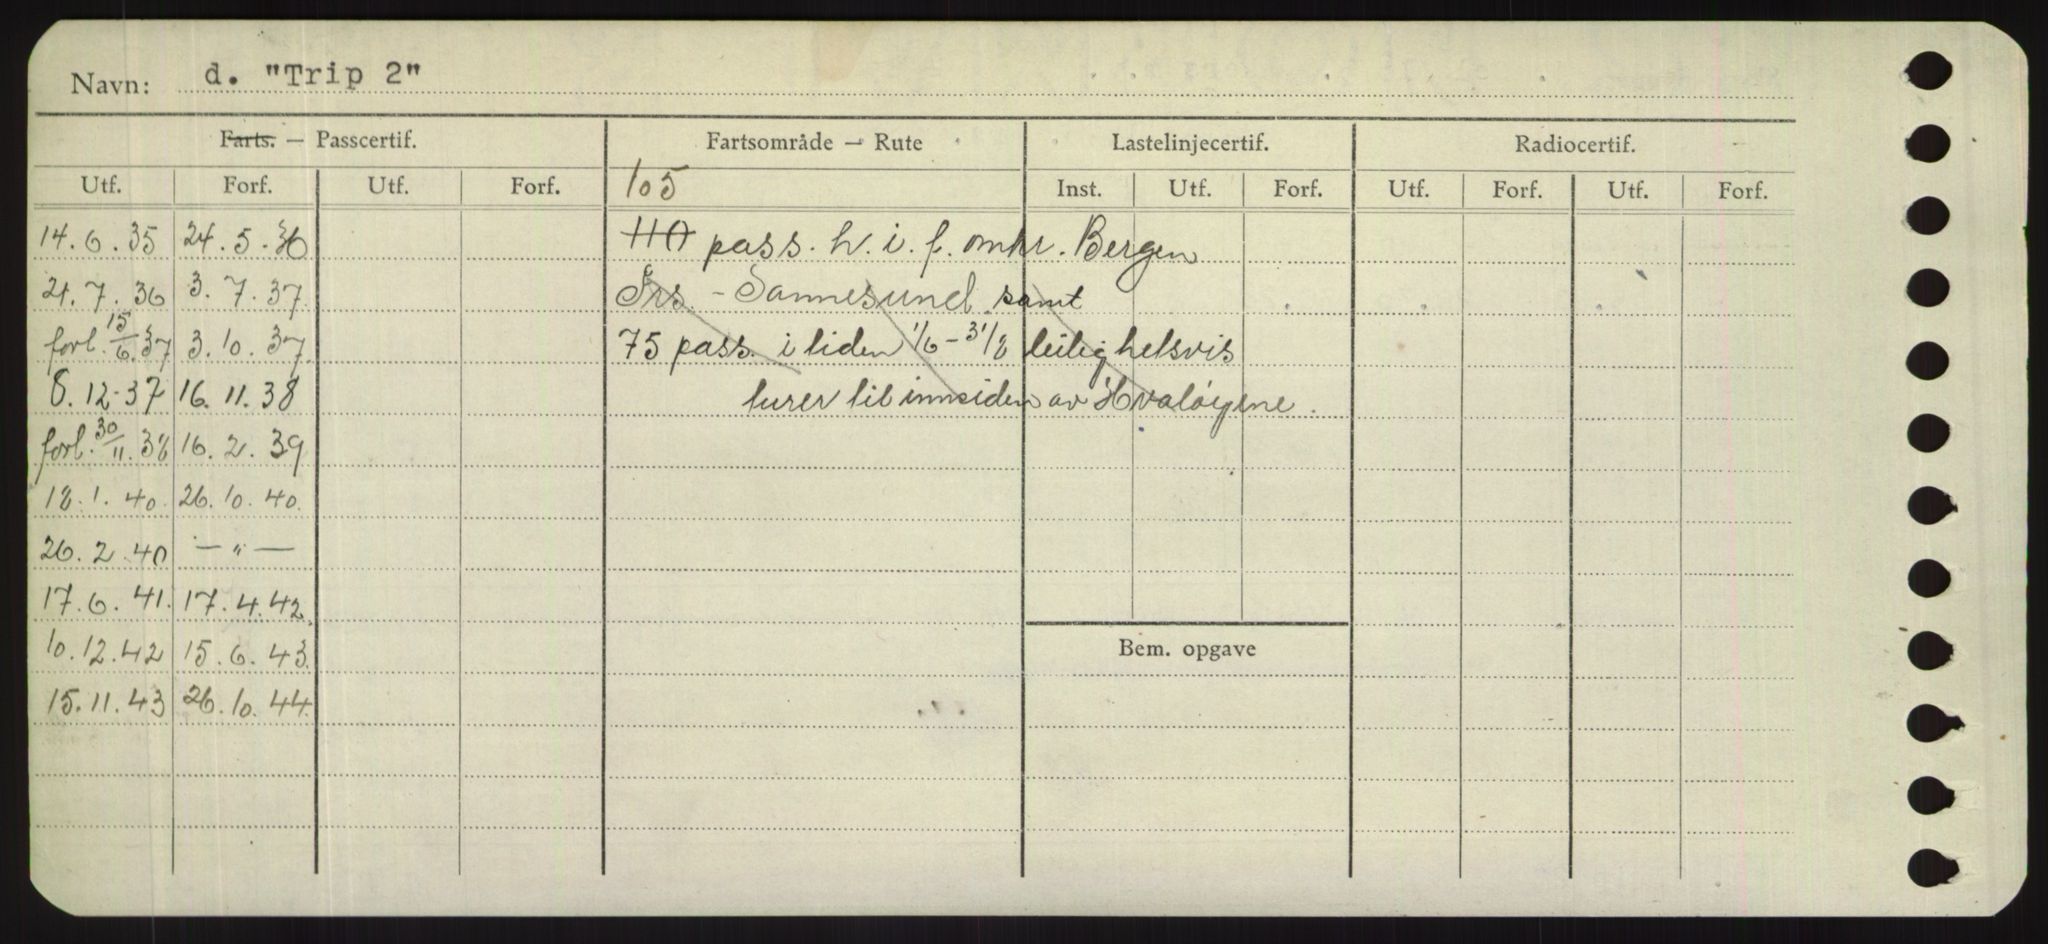 Navn: d. "Trip 2"
Farts. — Passcertif. Fartsområde — Rute Lastelinjecertif. Radiocertif.
Utf. Forf. Utf. Forf. 105 Inst. Utf. Forf. Utf. Forf. Utf. Forf.
14.6.35 24.5.36 110 pass. h. i. f. omkr. Bergen
21.7.36 3.7.37 Frs. - Sannesund samt
forl. 15/6.37 3.10.37 75 pass. i tiden 1/6 - 31/8 leilighetsvis
8.12.37 16.11.38 turer til innsiden av Hvaløyene.
forl. 30/11.38 16.2.39
18.1.40 26.10.40
26.2.40 — " —
17.6.41 17.4.42
Bem. opgave
10.12.42 15.6.43
15.11.43 26.10.44